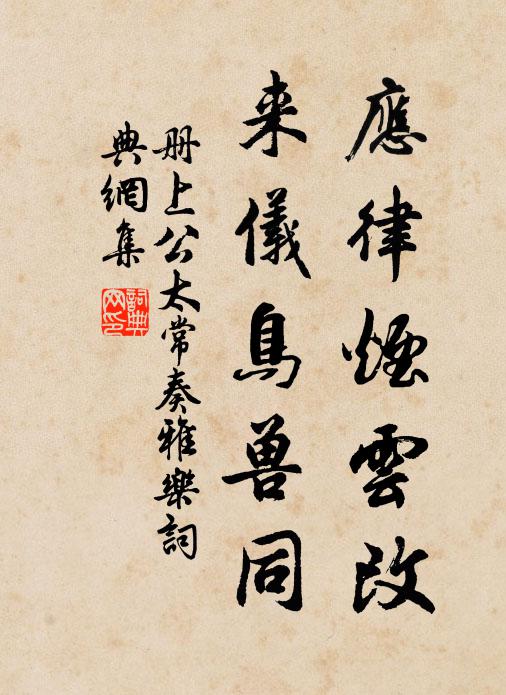 應律煙雲改
来儀鳥兽同
册上公太常奏雅樂詞
典網集
詞典
网印